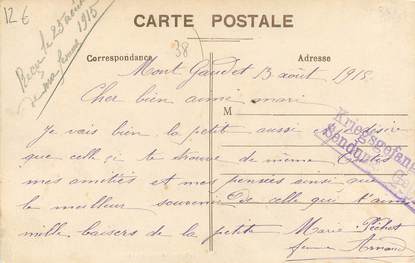 12€
Recu le 25 août
1915
de ma femme
38
CARTE POSTALE
Correspondance
Adresse
Mont Gaudet 13 août 1915
Cher bien aimé mari
M
Je vais bien la petit aussi Je désire
que celle si te trouve de même
mes amitiés et mes pensées ainsi que
le meilleur souvenir de celle qui t'aime
mille baisers de la petite Marie
femme Arnaud
Kriegsgefang
Sendung